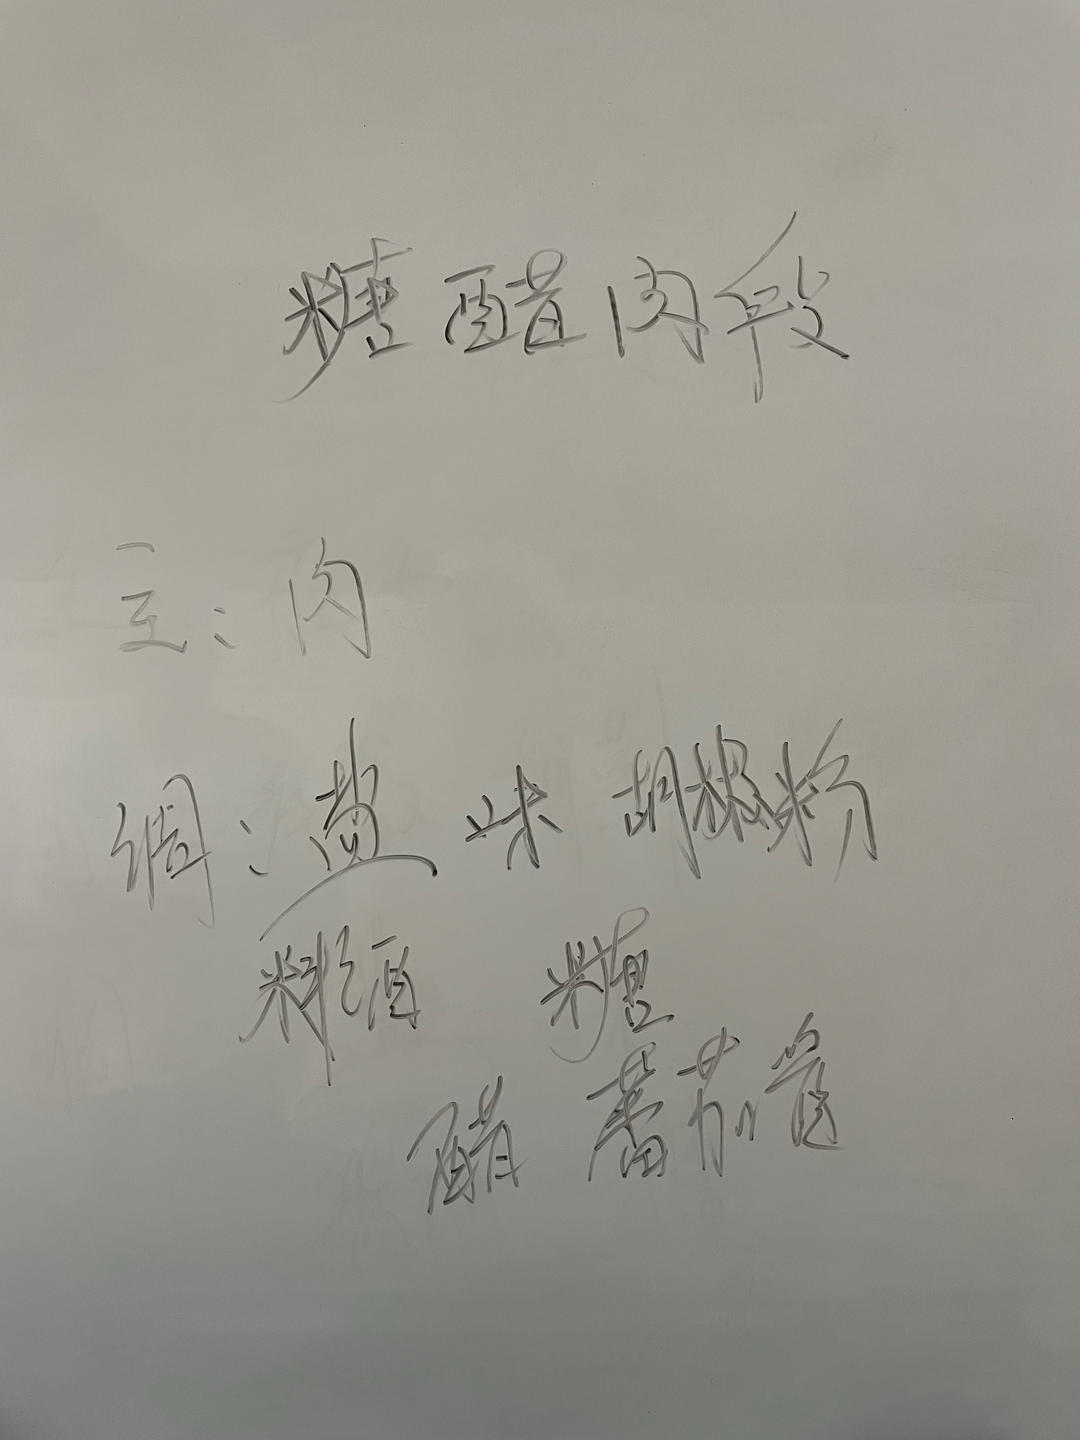 糖醋肉段
主：肉
调：盐 味 胡椒粉
料酒 糖
醋 蕃茄酱